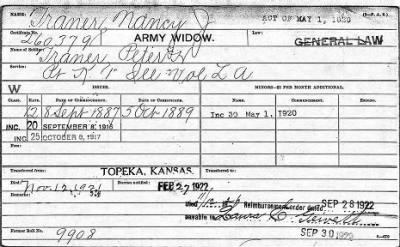 Traner, Nancy J. ACT OF MAY 1, 1920
Certificate No. ARMY WIDOW. Law:
260779 GENERAL LAW
Traner, Peter
Pt K 1" See Mo L A
W ISSUED. MINORS—$2 PER MONTH ADDITIONAL.
CLASS. RATE. DATE OF COMMENCEMENT. DATE OF CERTIFICATE. NAMES. COMMENCEMENT. ENDING.
12 8 Sept 1887 5 Oct 1889 Inc 30 May 1, 1920
INC. 20 SEPTEMBER 8, 1916
INC. 25 OCTOBER 6, 1917
Transferred from TOPEKA, KANSAS. Transferred to
Died: Bureau notified: FEB 27 1922
Nov. 12, 1921 Reimbursement order dated SEP 28 1922
Remarks: payable to
Former Roll No. SEP 30 1922
9908